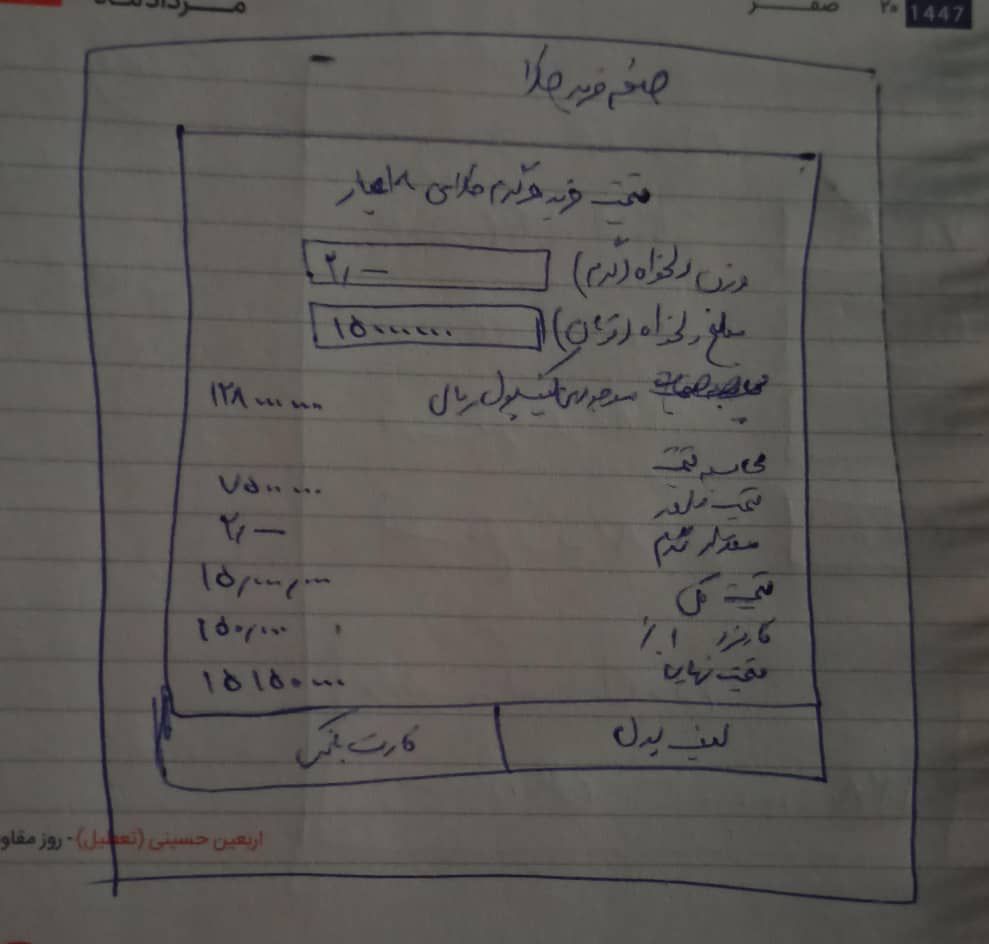 1447 ۲۰ صفر
صفحه خرید طلا
قیمت خرید هر گرم طلای ۱۸ عیار
وزن دلخواه (گرم) ۲/۰۰
مبلغ دلخواه (تومان) ۱۵۰۰۰۰۰۰
موجودی کیف پول ریال ۱۲۸۰۰۰۰۰۰
محاسبه قیمت
قیمت واحد ۷۵۰۰۰۰۰
مقدار گرم ۲/۰۰
قیمت کل ۱۵/۰۰۰/۰۰۰
کارمزد ۱٪ ۱۵۰/۰۰۰
قیمت نهایی ۱۵۱۵۰۰۰۰
کیف پول
کارت بانکی
اربعین حسینی (تعطیل) - روز مقاو